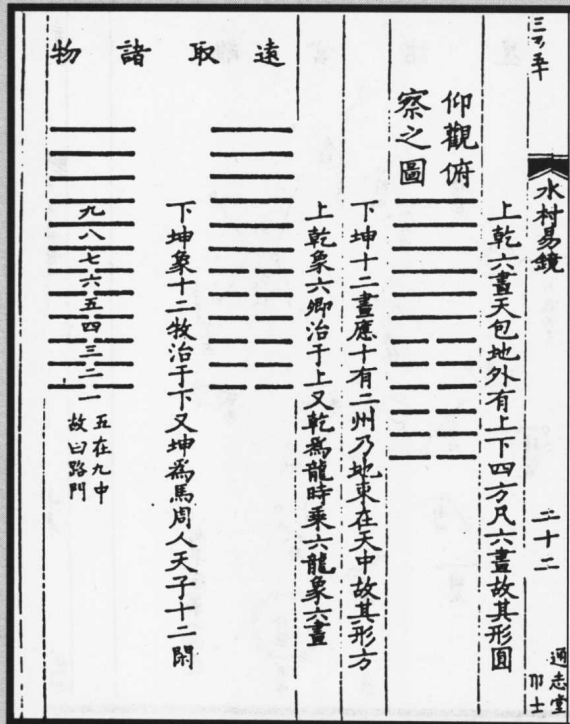 水村易鏡
二十二
通志堂
上乾六畫天包地外有上下四方凡六畫故其形圓
仰觀俯
察之圖
下坤十二畫應十有二州乃地東在天中故其形方
上乾象六卿治于上又乾爲龍時乘六龍象六畫
遠取諸物
下坤象十二牧治于下又坤爲馬周人天子十二閑
九八七六五四三二一
五在九中
故曰路門